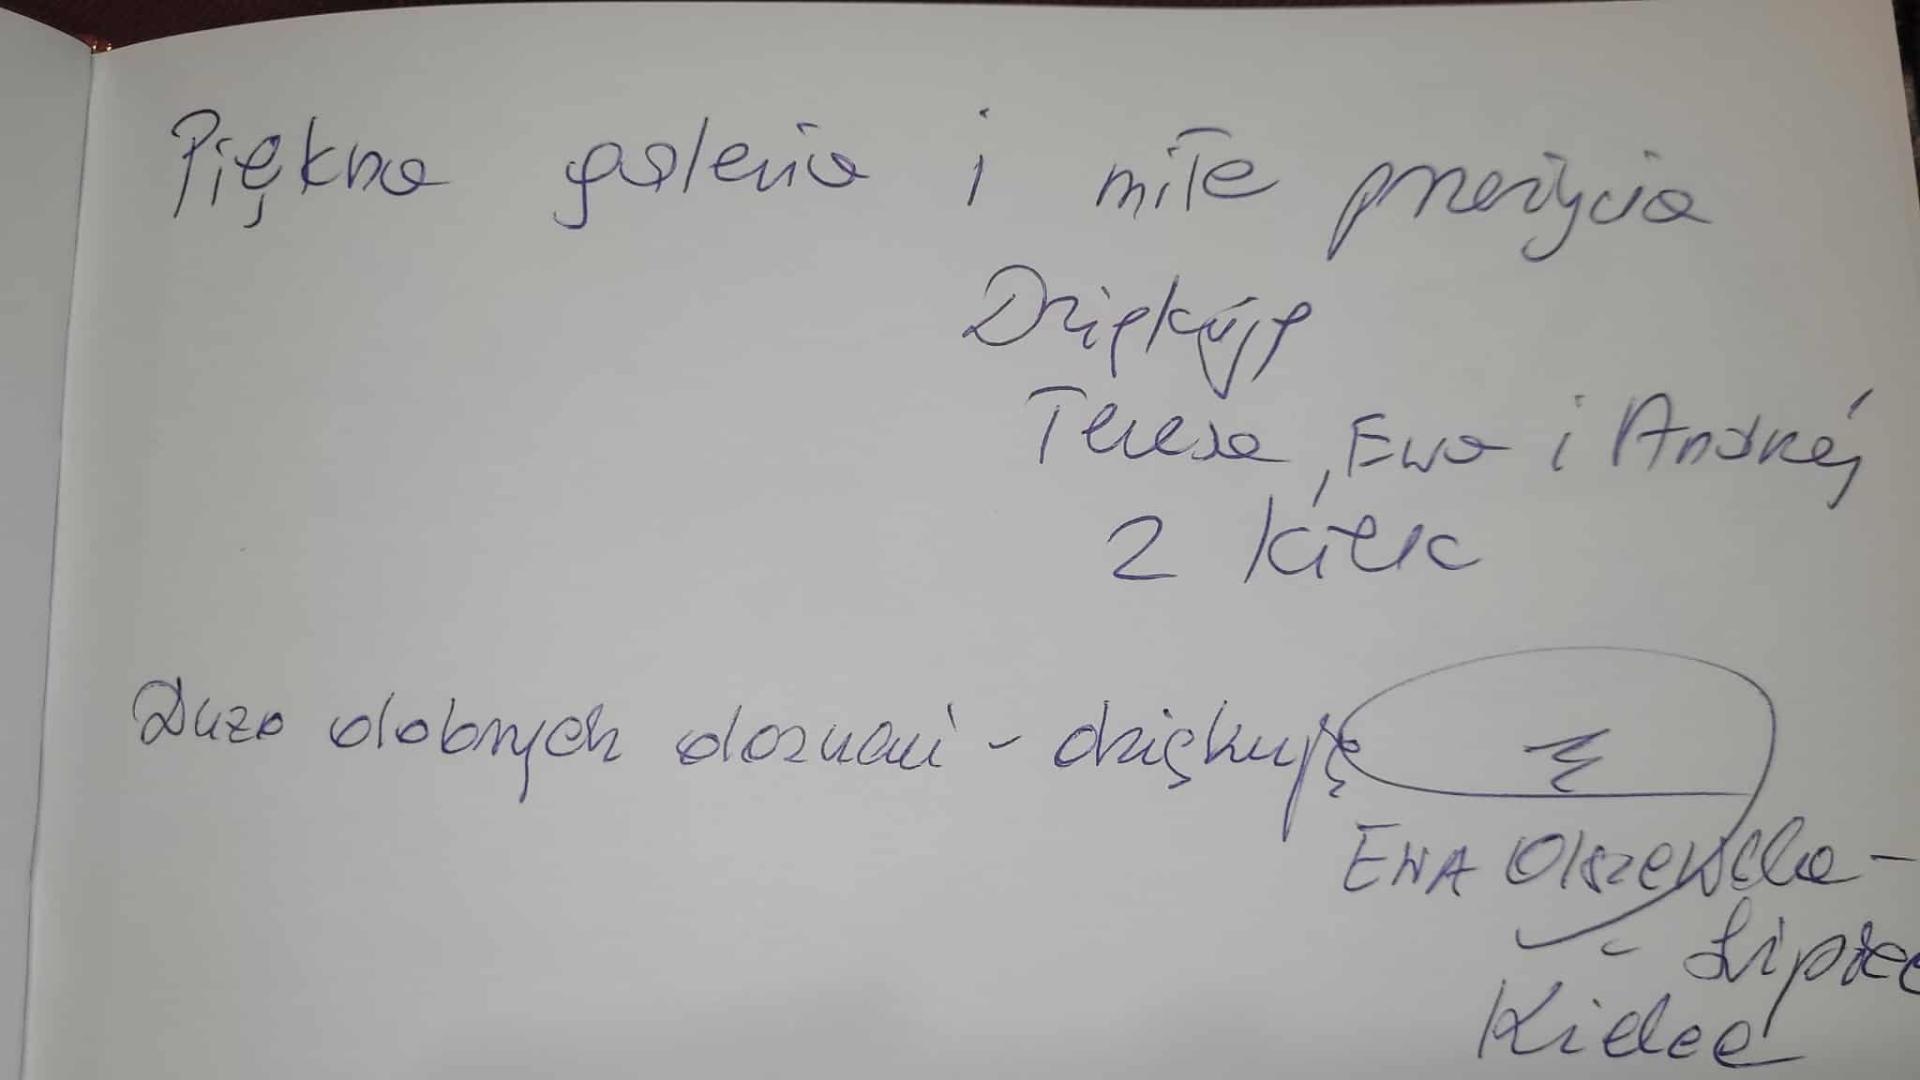 Piękna galeria i miłe przeżycia
Dziękuję
Teresa, Ewa i Andrzej
z Kielc
Dużo dobrych doznań - dziękuję
EWA Olszewska -
- Lipiec
Kielce